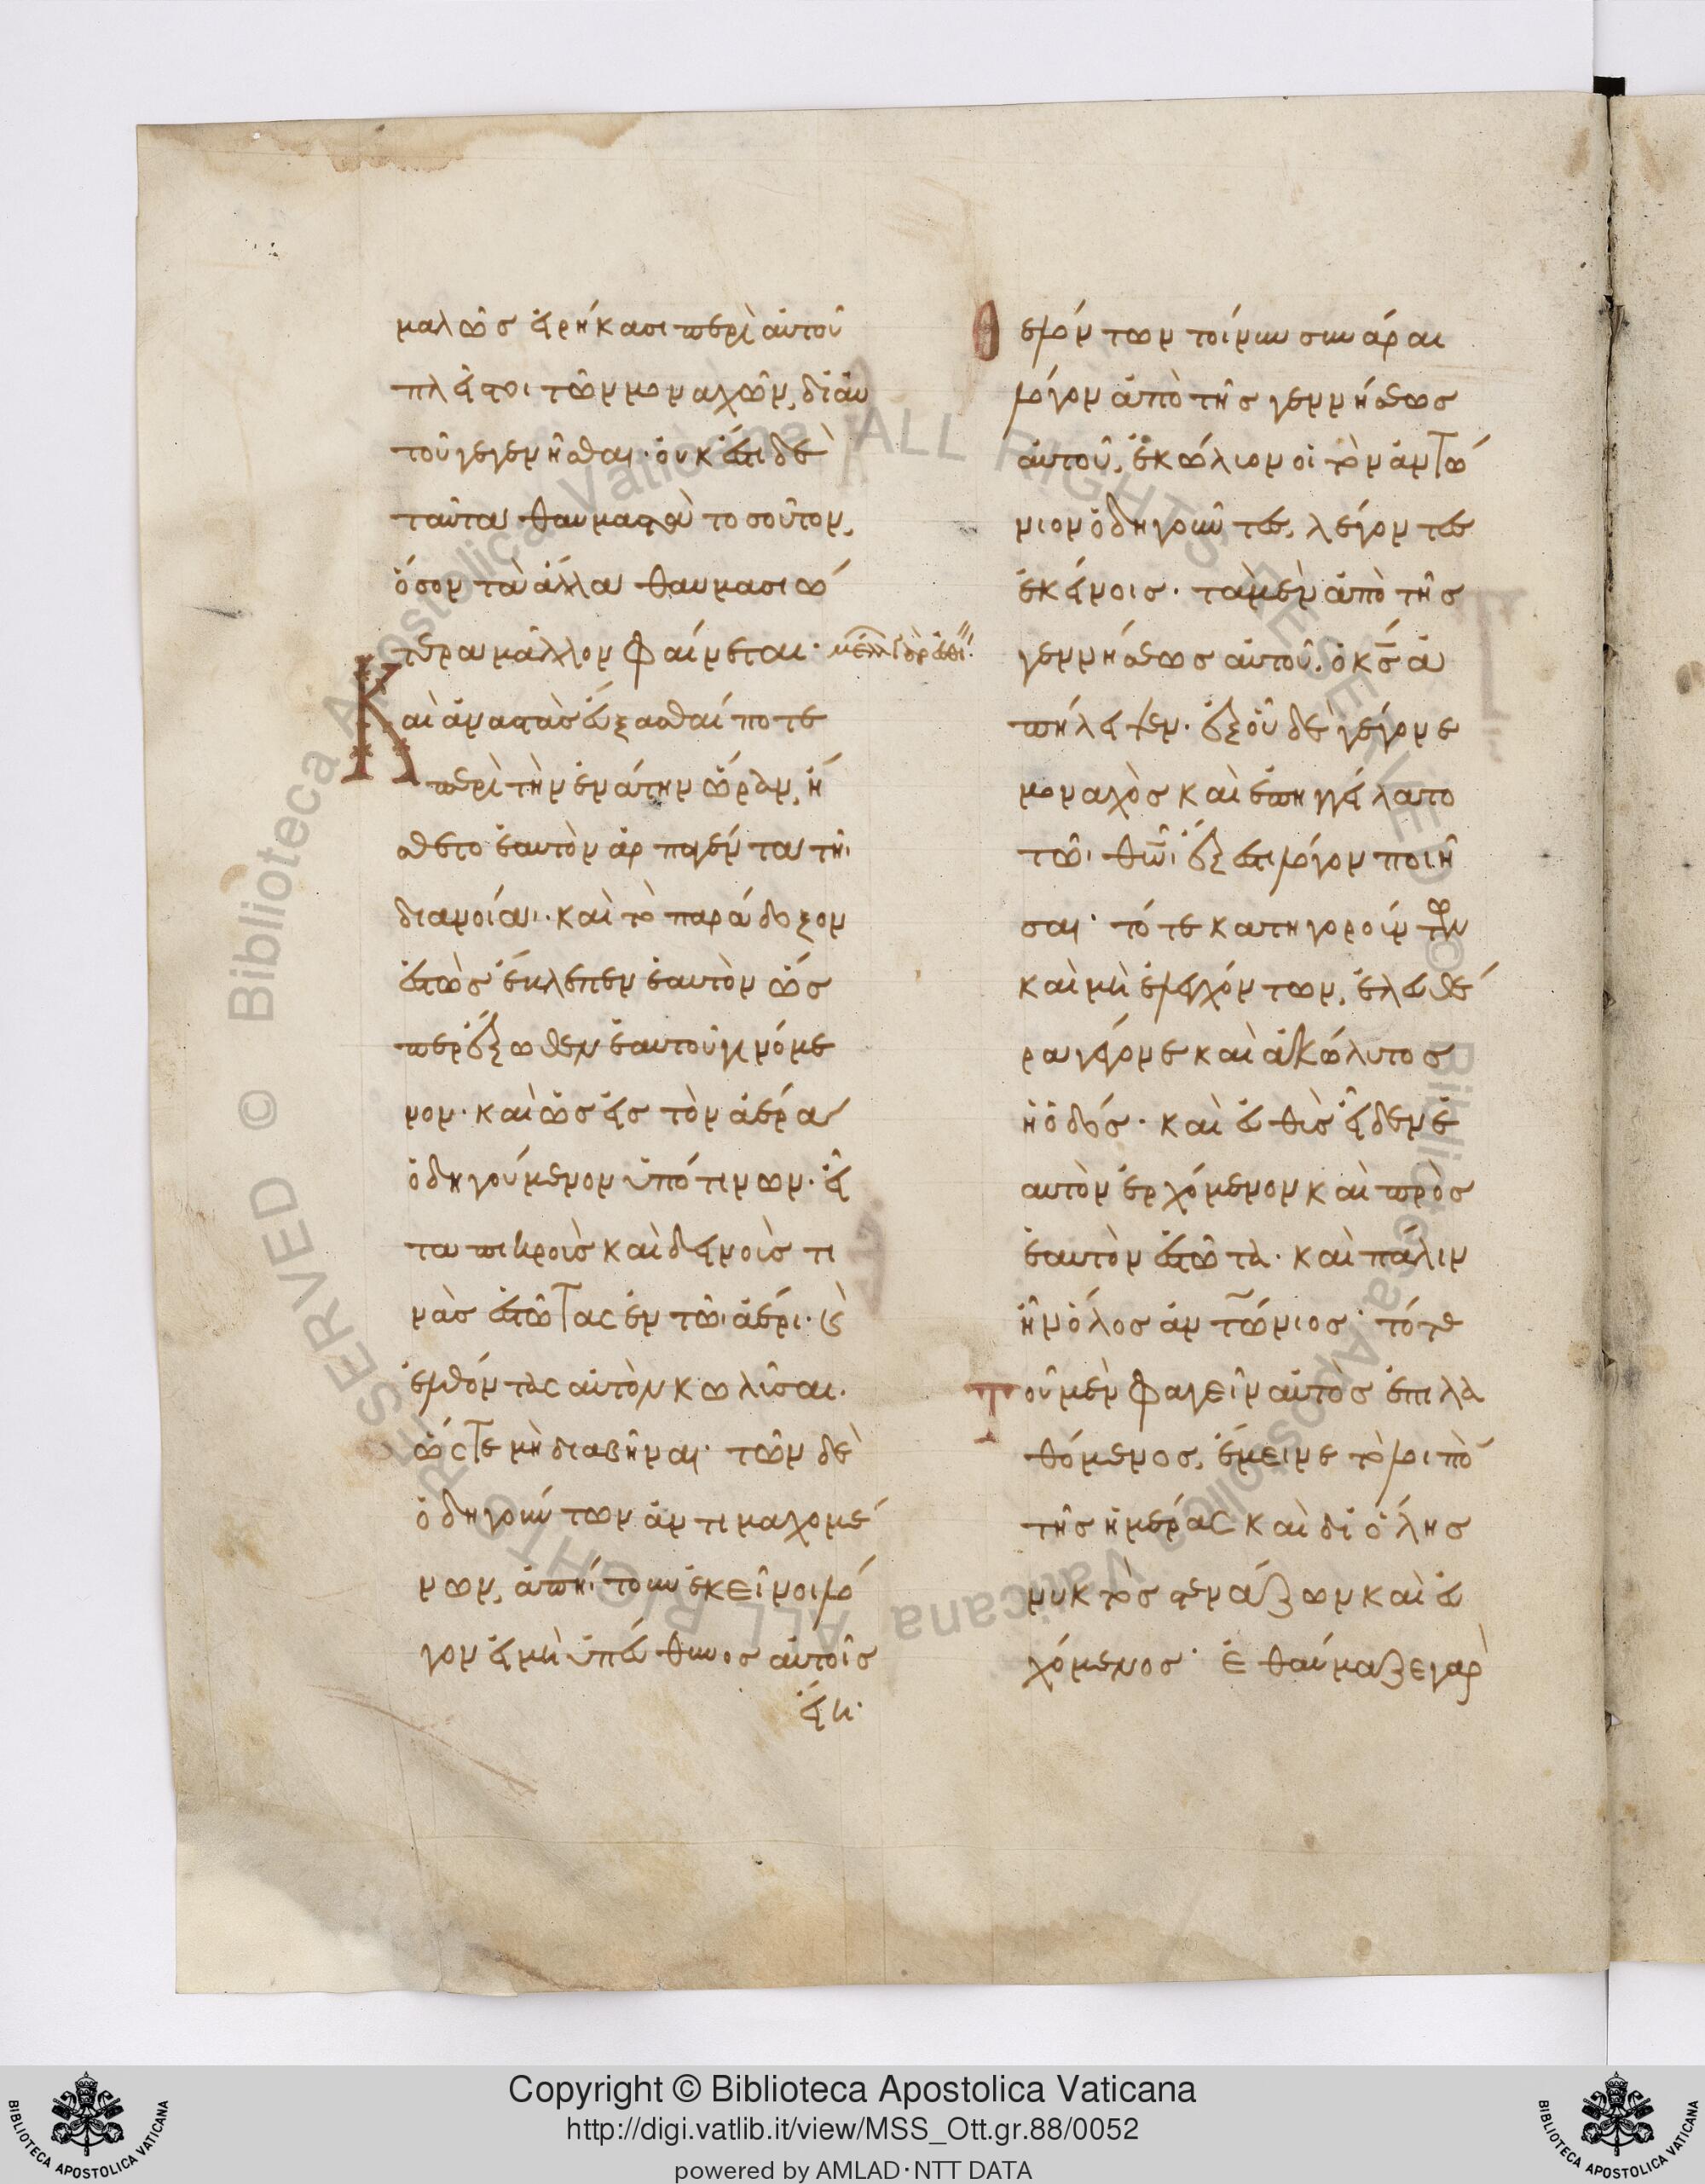 μαλῶς εἰρήκασι περὶ αὐτοῦ
πλεῖστοι τῶν μοναχῶν, δι' αὐ
τοῦ γεγενῆσθαι· οὐκ ἔστι δὲ
ταῦτα θαυμαστὰ τοσοῦτον,
ὅσον τὰ ἄλλα θαυμασιώ
τερα μᾶλλον φαίνεται·
Καὶ ἀναστὰς εὔξασθαί ποτε
περὶ τὴν ἐνάτην ὥραν, ἤ
σθετο ἑαυτὸν ἁρπαγέντα τῆι
διανοίαι· καὶ τὸ παράδοξον
ἑστὼς ἔβλεπεν ἑαυτὸν ὥσ
περ ἔξωθεν ἑαυτοῦ γινόμε
νον· καὶ ὡς εἰς τὸν ἀέρα
ὁδηγούμενον ὑπό τινων· εἶ
τα πικροὺς καὶ δεινοὺς τι
νὰς ἑστῶτας ἐν τῶι ἀέρι· καὶ
ἐλθόντας αὐτὸν κωλῦσαι·
ὥστε μὴ διαβῆναι· τῶν δὲ
ὁδηγούντων ἀντιμαχομέ
νων, ἀπήιτουν ἐκεῖνοι λό
γον εἰ μὴ ὑπεύθυνος αὐτοῖς
εἴη·
Θελόντων τοίνυν συνάραι
λόγον ἀπὸ τῆς γεννήσεως
αὐτοῦ, ἐκώλυον οἱ τὸν ἀντώ
νιον ὁδηγοῦντες, λέγοντες
ἐκείνοις· τὰ μὲν ἀπὸ τῆς
γεννήσεως αὐτοῦ, ὁ κς ἀ
πήλειψεν· ἐξ οὗ δὲ γέγονε
μοναχὸς καὶ ἐπηγγείλατο
τῶι θωι ἔξεστι λόγον ποιῆ
σαι· τότε κατηγορούντων
καὶ μὴ ἐλεγχόντων, ἐλευθέ
ρα γέγονε καὶ ἀκώλυτος
ἡ ὁδός· καὶ εὐθὺς εἶδεν ἑ
αυτὸν ἐρχόμενον καὶ πρὸς
ἑαυτὸν ἑστῶτα· καὶ πάλιν
ἦν ὅλος ἀντώνιος· τότε
Τοῦ μὲν φαγεῖν αὐτὸς ἐπιλα
θόμενος, ἔμεινε τὸ λοιπὸ
τῆς ἡμέρας καὶ δι' ὅλης
νυκτὸς στενάζων καὶ εὐ
χόμενος· ἐθαύμαζε γὰρ
Copyright © Biblioteca Apostolica Vaticana
http://digi.vatlib.it/view/MSS_Ott.gr.88/0052
powered by AMLAD·NTT DATA